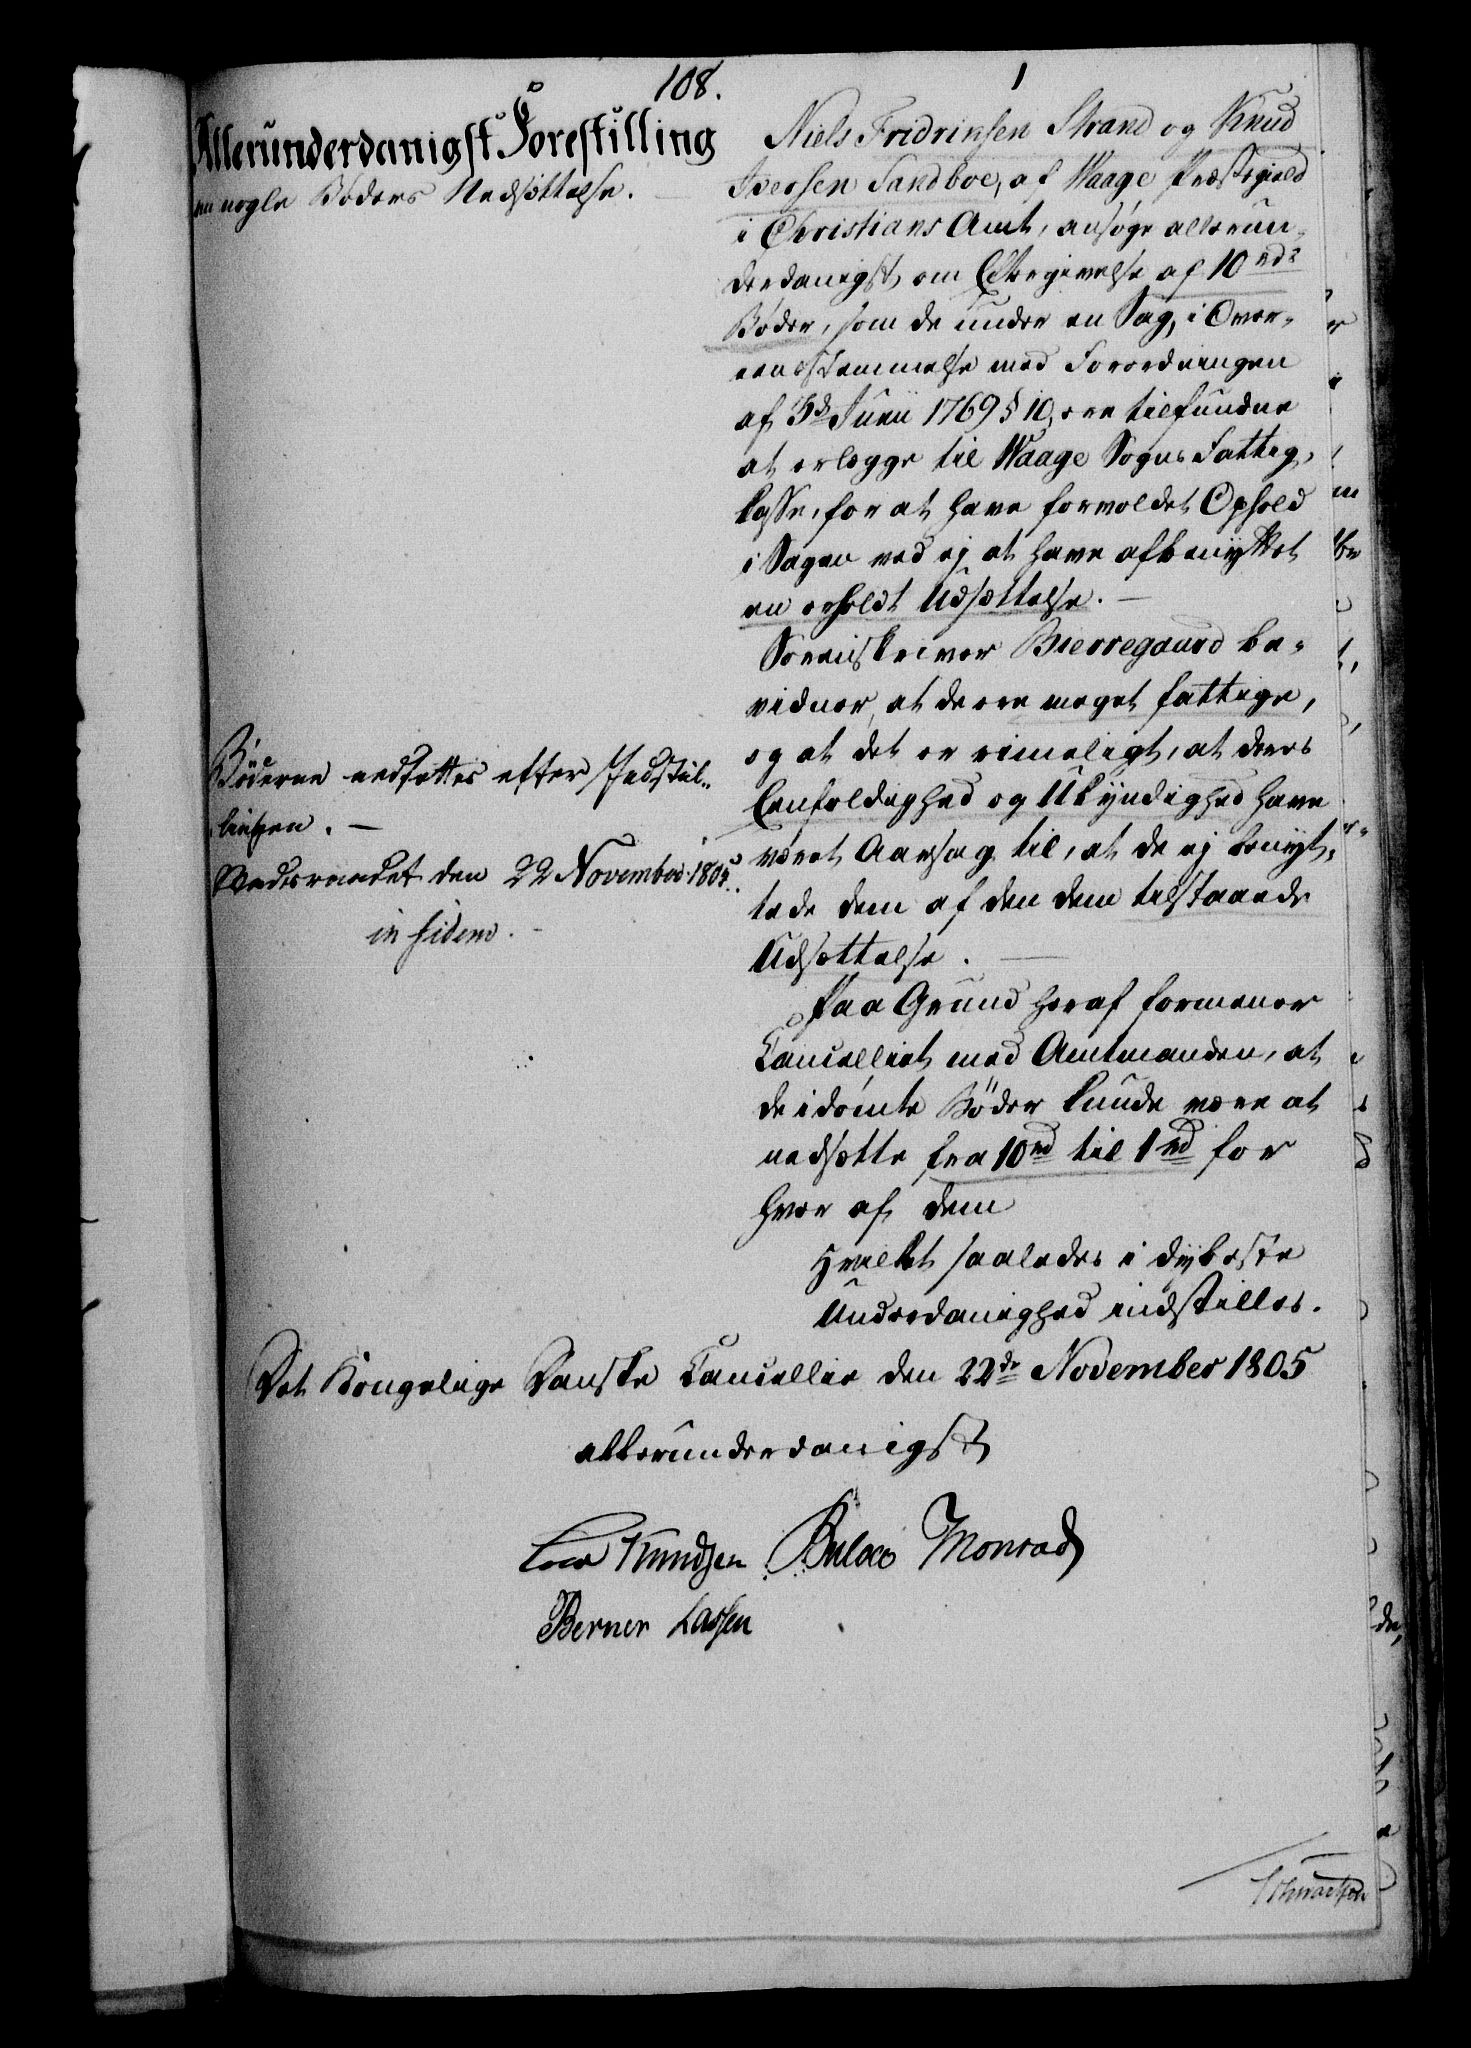 108.
1
Allerunderdanigst Forestilling
om nogle Böders Nedsættelse.
Niels Fridrinsen Strand og Knud
Iversen Sandboe, af Waage Præstegield
i Christians Amt, ansøge allerun-
derdanigst om Eftergivelse af 10 rd
Bøder, som de under en Sag, i Over-
eensstemmelse med Forordningen
af 3d Junii 1769 § 10, ere tilfundne
at erlægge til Waage Sogns Fattig-
Casse, for at have forvoldet Ophold
i Sagen ved ej at have afbenyttet
en erholdt Udsættelse. —
Sorenskriver Bierregaard be-
vidner, at de ere meget fattige,
og at det er rimeligt, at deres
Eenfoldighed og Ukyndighed have
været Aarsag til, at de ej benyt-
tede dem af den dem tilstaaede
Udsættelse. —
Paa Grund heraf formener
Cancelliet med Amtmanden, at
de idømte Böder kunde være at
nedsætte fra 10 rd til 1 rd for
hver af dem
Hvilket saaledes i dybeste
Underdanighed indstilles.
Böderne nedsættes efter Indstil-
lingen. —
Statsraadet den 22 November 1805.
in fidem. -
Det Kongelige Danske Cancellie den 22de November 1805
allerunderdanigst
Knudsen Bülow Monrad
Berner Lassen